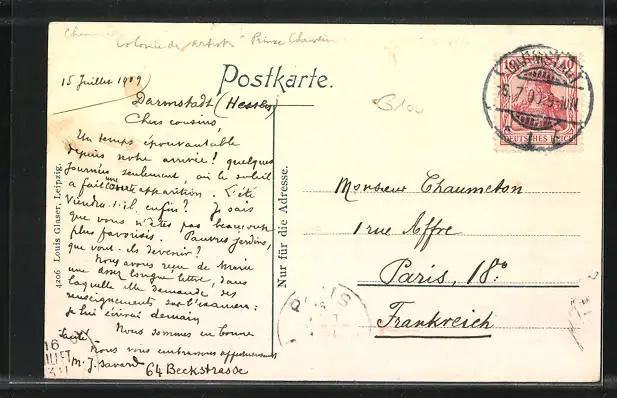 colonie des artistes Prince Christian
15 Juillet 1909
Postkarte.
Darmstadt (Hessen)
Chers cousins,
Un temps épouvantable
depuis notre arrivée! quelques
journées seulement, où le soleil
a fait une courte apparition. L'été
viendra-t-il enfin? Je sais
que vous n'êtes pas beaucoup
plus favorisés. Pauvres jardins,
que vont-ils devenir?
Nous avons reçu de Marie
une assez longue lettre, dans
laquelle elle demande des
renseignements sur l'examen:
je lui écrirai demain
Nous sommes en bonne
santé
Nous vous embrassons affectueusement
M. J. Savard 64 Beckstrasse
4206 Louis Glaser, Leipzig.
Nur für die Adresse.
DARMSTADT
DEUTSCHES REICH
10
10
Monsieur Chaumeton
1 rue Affre
Paris, 18e
Frankreich
PARIS
16
JUILLET